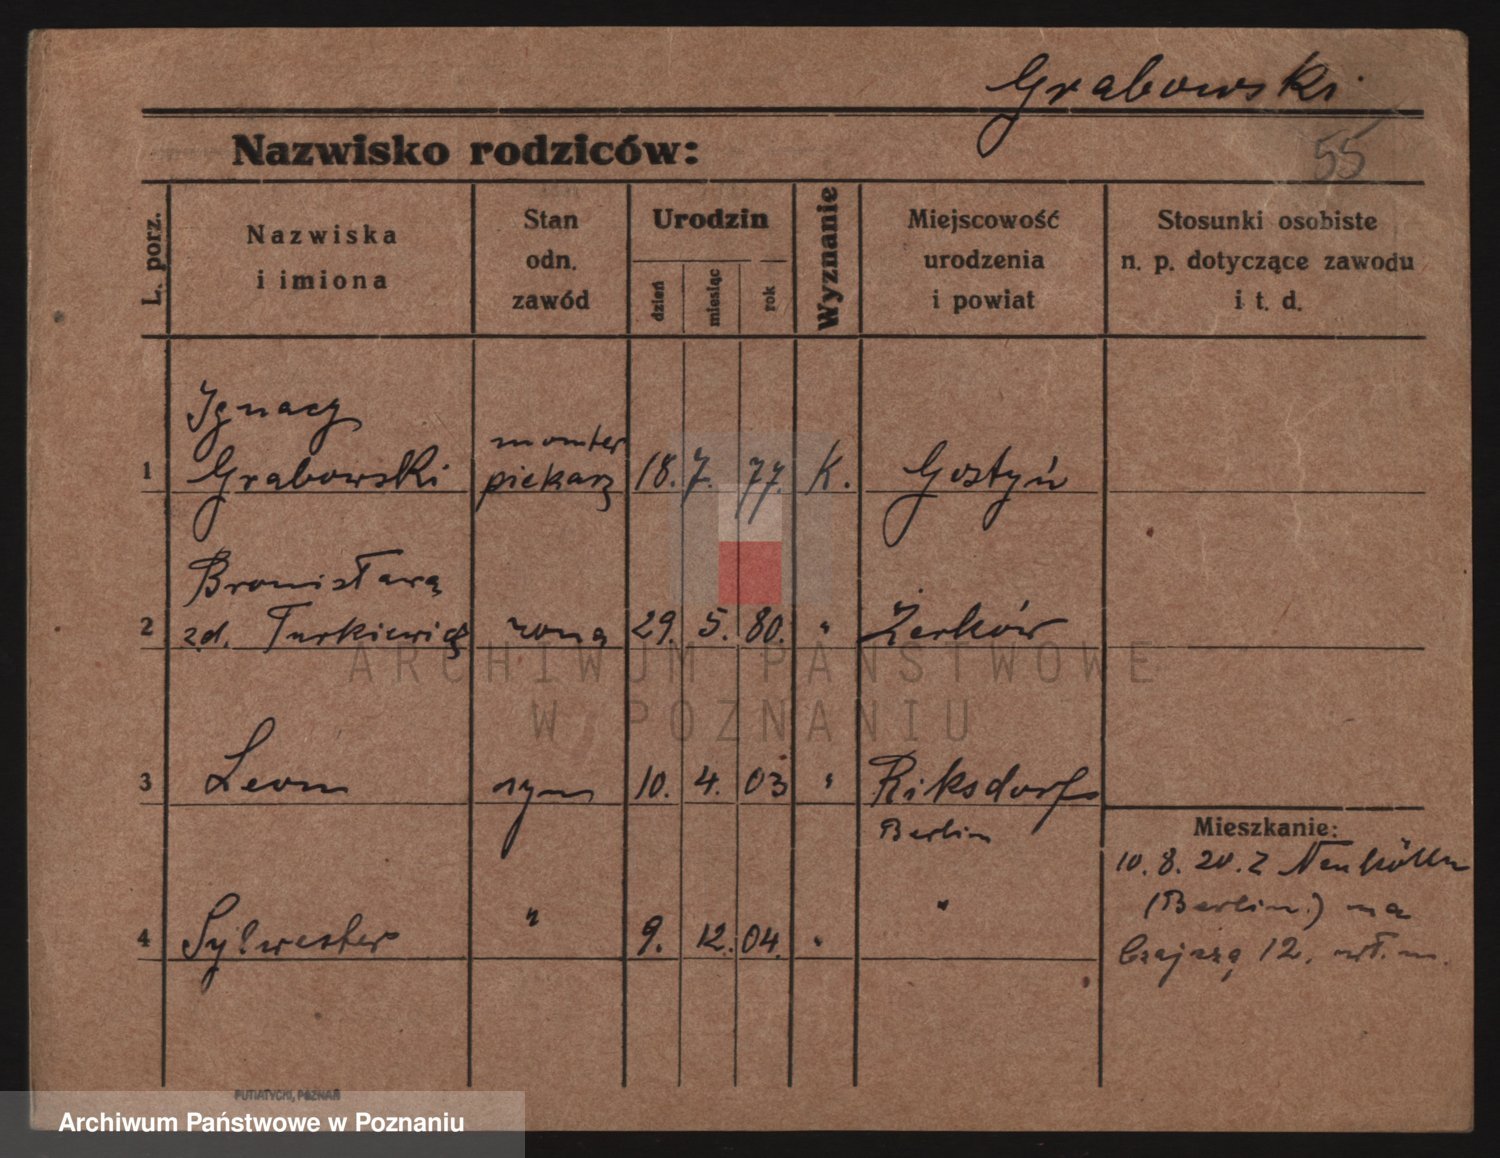 Grabowski
55
Nazwisko rodziców:
L. porz.
Nazwiska
i imiona
Stan
odn.
zawód
Urodzin
dzień
miesiąc
rok
Wyznanie
Miejscowość
urodzenia
i powiat
Stosunki osobiste
n. p. dotyczące zawodu
i t. d.
Ignacy
monter
1 Grabowski piekarz 18. 7. 77. K. Gostyń
Bronisława
2 zd. Turkiewicz żona 29. 5. 80. " Żerków
3 Leon syn 10. 4. 03 " Riksdorf
Berlin
Mieszkanie:
10. 8. 20. z Neukölln
(Berlin.) na
4 Sylwester " 9. 12. 04. " "
12. wł. m.
ARCHIWUM PAŃSTWOWE
W POZNANIU
PUTIATYCKI, POZNAŃ
Archiwum Państwowe w Poznaniu